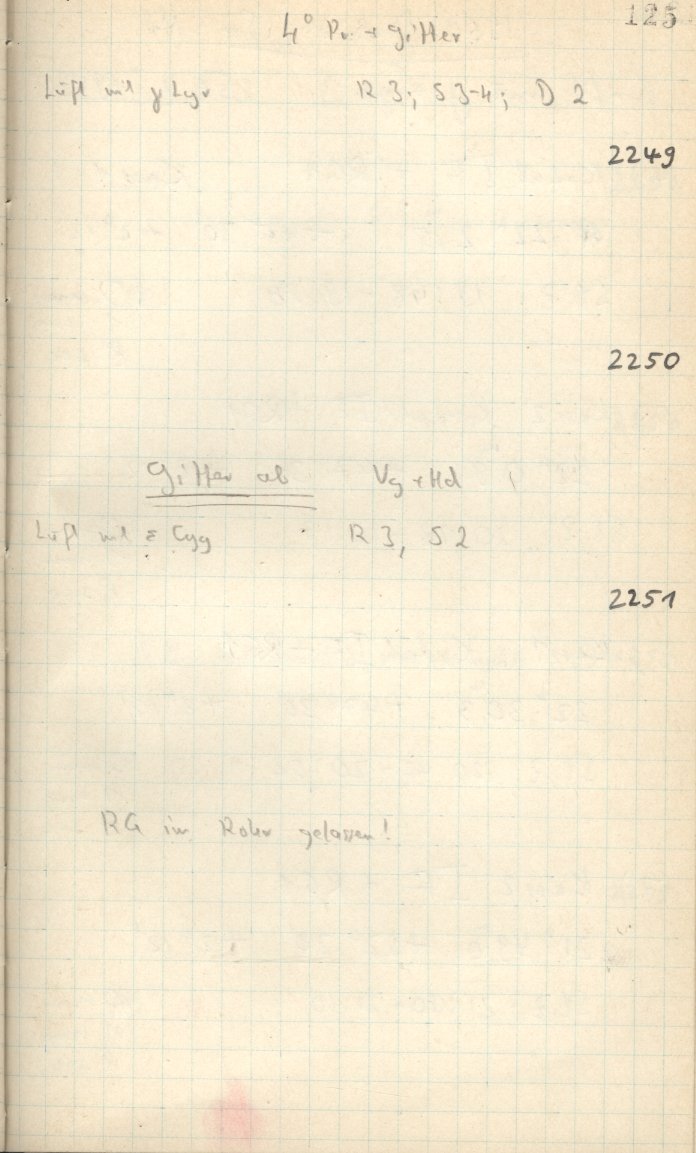 125
4° Pr. + Gitter
Luft mit γ Lyr R 3; S 3-4; D 2
2249
2250
Gitter ab Vg + Hd
Luft mit ε Cyg R 3, S 2
2251
RG im Rohr gelassen!